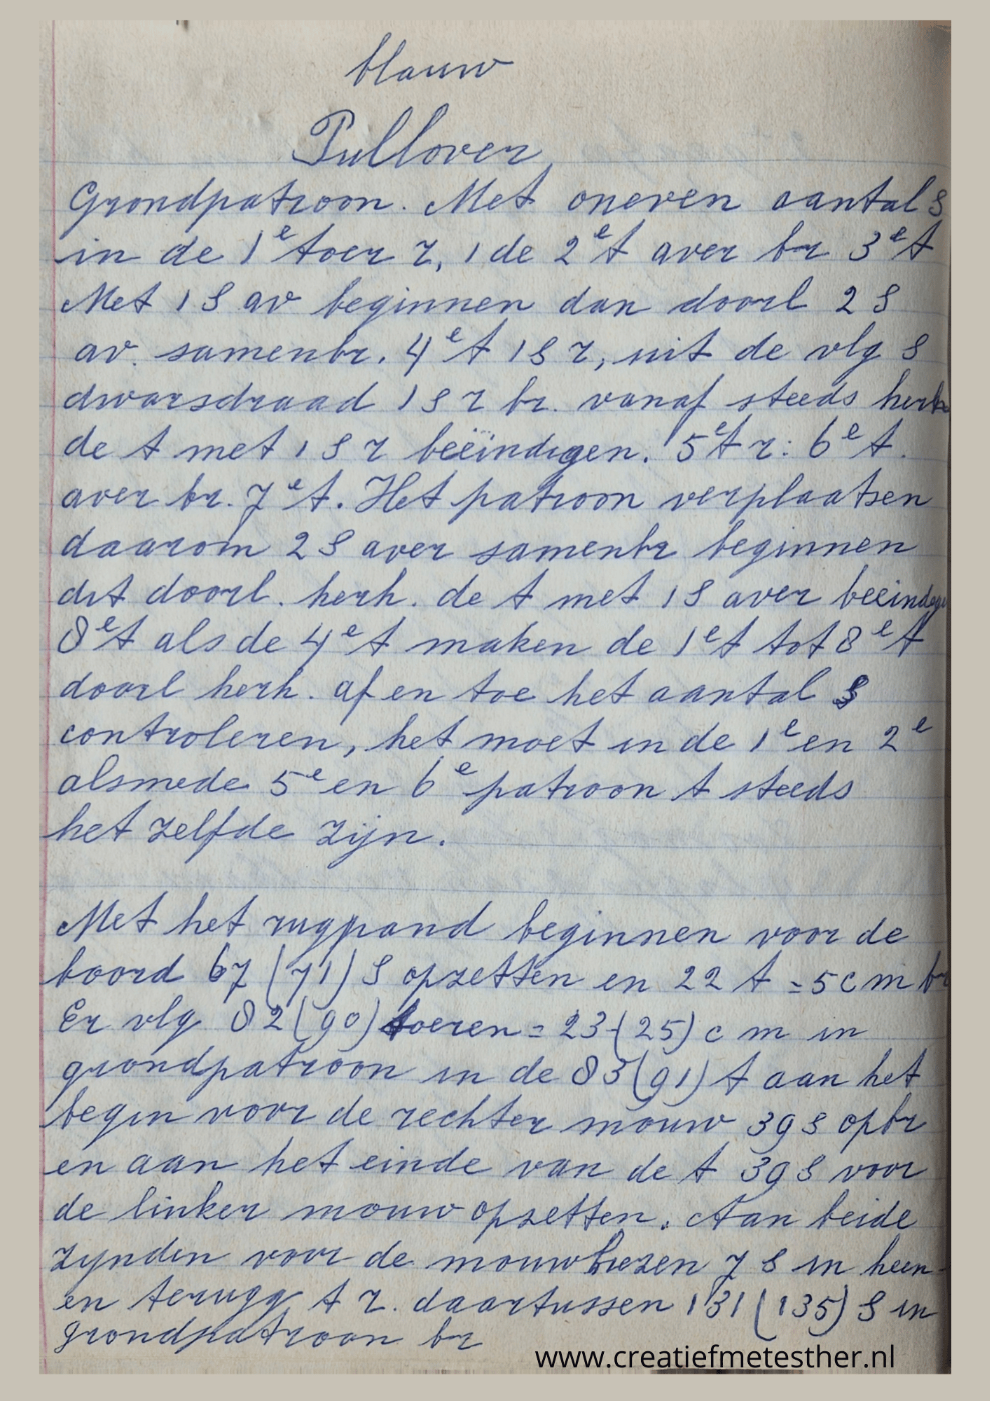 blauw
Pullover
Grondpatroon. Met oneven aantal S
in de 1e toer r, 1 de 2e t aver br 3e t
Met 1 S av beginnen dan doorl 2 S
av. samenbr. 4e t 1 S r, uit de vlg S
dwarsdraad 1 S r br. vanaf steeds herh
de t met 1 S r beëindigen. 5e t r: 6e t.
aver br. 7e t. Het patroon verplaatsen
daarom 2 S aver samenbr beginnen
dit doorl. herh. de t met 1 S aver beeindigen
8e t als de 4e t maken de 1e t tot 8e t
doorl herh. af en toe het aantal S
controleren, het moet in de 1e en 2e
alsmede 5e en 6e patroon t steeds
het zelfde zijn.
Met het rugpand beginnen voor de
boord 67 (71) S opzetten en 22 t = 5 cm br
Er vlg 82 (90) toeren = 23-(25) cm in
grondpatroon in de 83 (91) t aan het
begin voor de rechter mouw 39 S opbr
en aan het einde van de t 39 S voor
de linker mouw opzetten. Aan beide
zynden voor de mouwbiezen 7 S in heen-
en terugg t r. daartussen 131 (135) S in
grondpatroon br
www.creatiefmetesther.nl